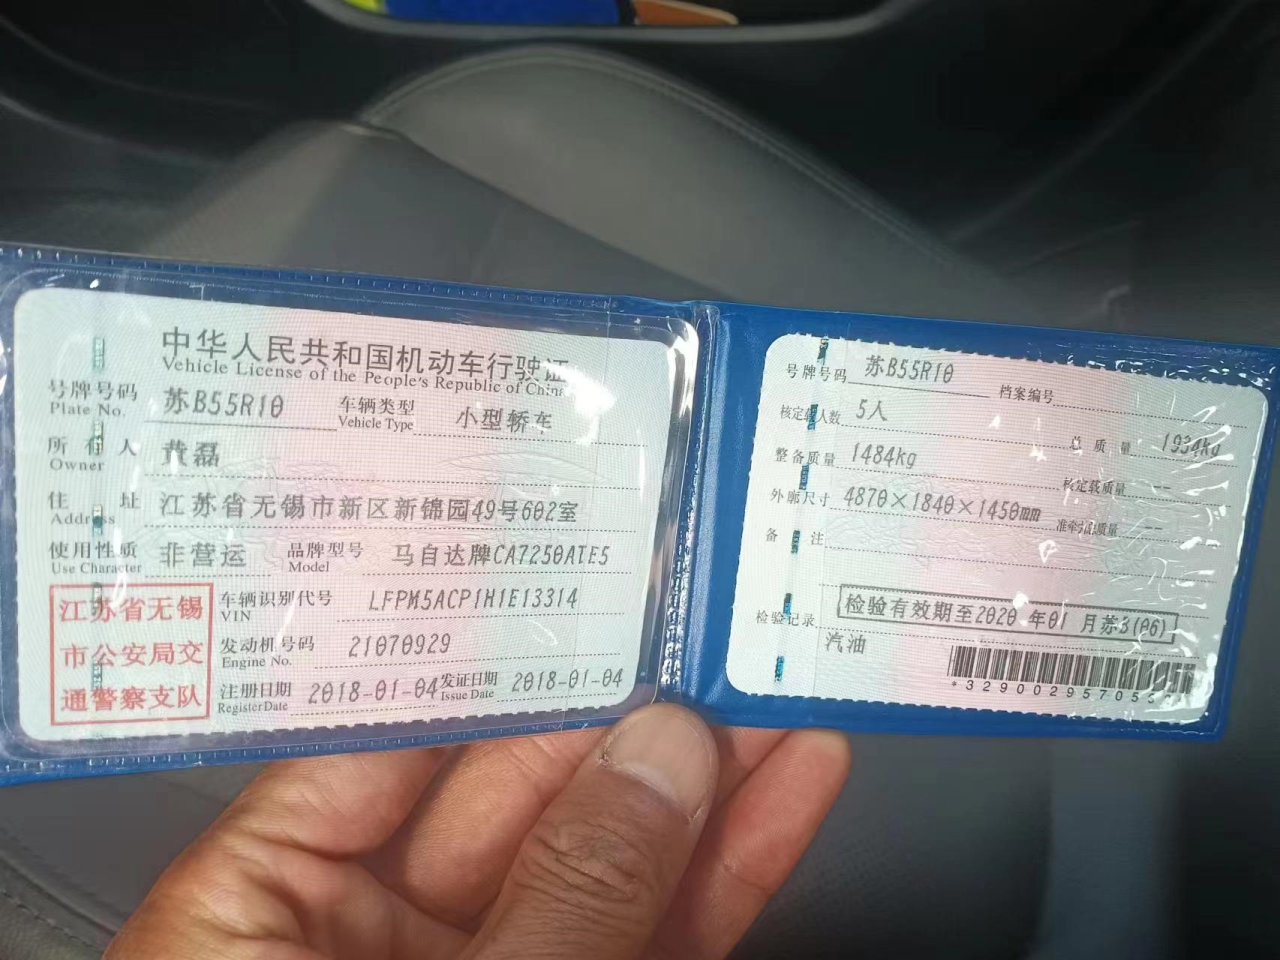 中华人民共和国机动车行驶证
Vehicle License of the People's Republic of China
号牌号码 苏B55R10 车辆类型 小型轿车
Plate No. Vehicle Type
所有人 黄磊
Owner
住址 江苏省无锡市新区新锦园49号602室
Address
使用性质 非营运 品牌型号 马自达牌CA7250ATE5
Use Character Model
江苏省无锡
市公安局交
通警察支队
车辆识别代号 LFPM5ACP1H1E13314
VIN
发动机号码 21070929
Engine No.
注册日期 2018-01-04 发证日期 2018-01-04
Register Date Issue Date
号牌号码 苏B55R10 档案编号
核定载人数 5人 总质量 1934kg
整备质量 1484kg 核定载质量 --
外廓尺寸 4870×1840×1450mm 准牵引总质量 --
备注
检验记录 检验有效期至2020年01月苏3(06)
汽油